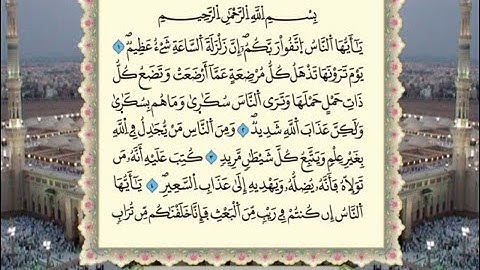 بِسْمِ اللَّهِ الرَّحْمَٰنِ الرَّحِيمِ
يَٰٓأَيُّهَا ٱلنَّاسُ ٱتَّقُوا۟ رَبَّكُمْ ۖ إِنَّ زَلْزَلَةَ ٱلسَّاعَةِ شَىْءٌ عَظِيمٌ ۝١
يَوْمَ تَرَوْنَهَا تَذْهَلُ كُلُّ مُرْضِعَةٍ عَمَّآ أَرْضَعَتْ وَتَضَعُ كُلُّ
ذَاتِ حَمْلٍ حَمْلَهَا وَتَرَى ٱلنَّاسَ سُكَٰرَىٰ وَمَا هُم بِسُكَٰرَىٰ
وَلَٰكِنَّ عَذَابَ ٱللَّهِ شَدِيدٌ ۝٢ وَمِنَ ٱلنَّاسِ مَن يُجَٰدِلُ فِى ٱللَّهِ
بِغَيْرِ عِلْمٍ وَيَتَّبِعُ كُلَّ شَيْطَٰنٍ مَّرِيدٍ ۝٣ كُتِبَ عَلَيْهِ أَنَّهُۥ مَن
تَوَلَّاهُ فَأَنَّهُۥ يُضِلُّهُۥ وَيَهْدِيهِ إِلَىٰ عَذَابِ ٱلسَّعِيرِ ۝٤ يَٰٓأَيُّهَا
ٱلنَّاسُ إِن كُنتُمْ فِى رَيْبٍ مِّنَ ٱلْبَعْثِ فَإِنَّا خَلَقْنَٰكُم مِّن تُرَابٍ